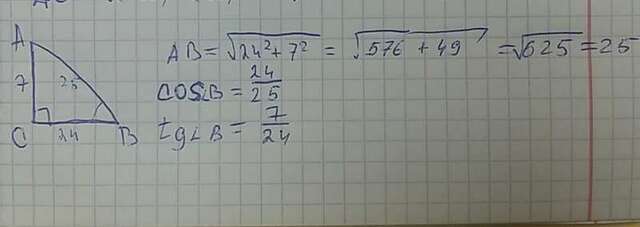 A
7
25
C
24
B
AB = √24² + 7² = √576 + 49 = √625 = 25
cos∠B = 24/25
tg∠B = 7/24